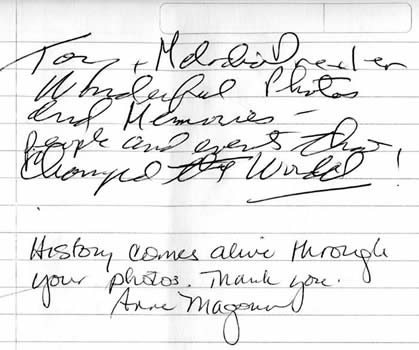 Tony + Melodie Drexler
Wonderful Photos
and Memories –
people and events that
changed the World!
History comes alive through
your photos. Thank you.
Anne